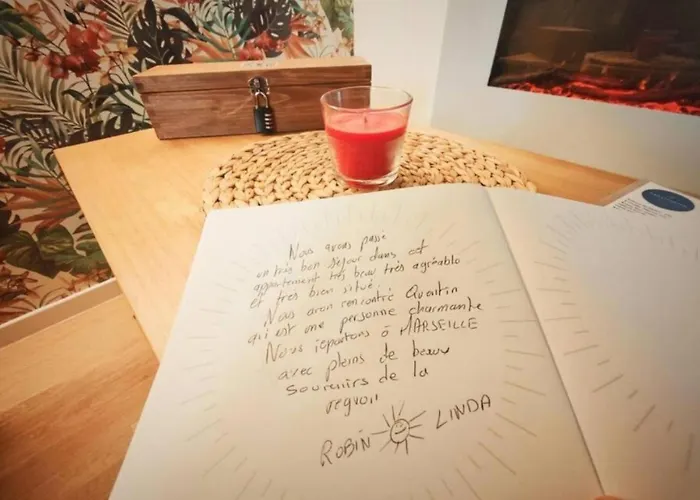 Nous avons passé
un très bon séjour dans cet
appartement très beau très agréable
et très bien situé.
Nous avon rencontré Quentin
qui est une personne charmante
Nous repartons à MARSEILLE
avec pleins de beaux
souvenirs de la
region
ROBIN LINDA